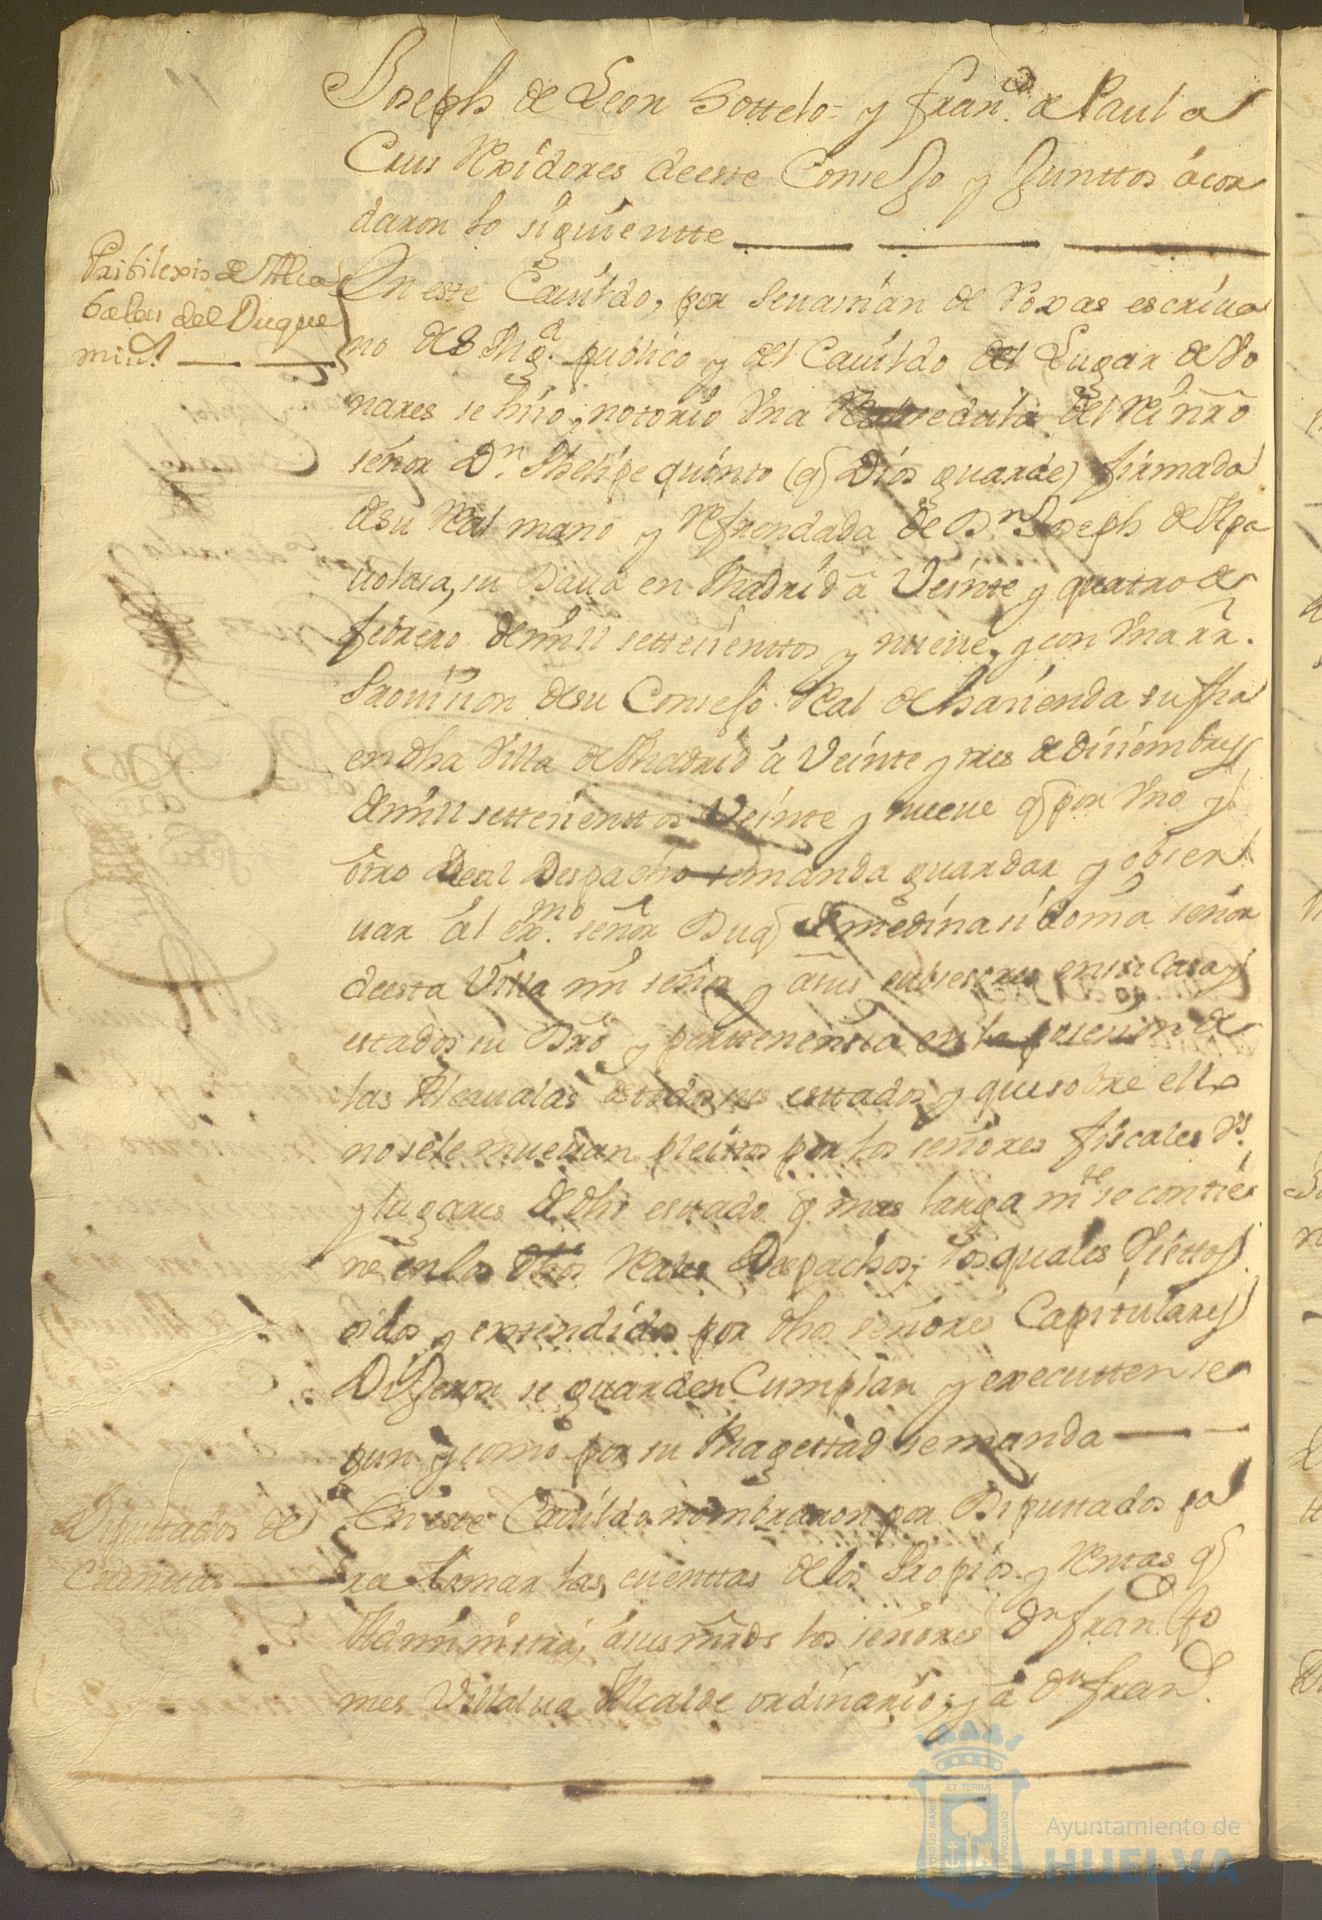 Joseph de Leon Sottelo = y Fran.co de Paula
Crus Rexidores deeste Consejo y Junttos acor
daron lo siguientte
Pribilexio de Alca
balas del Duque
mi s.r
En este Cauildo, por Seuastian de Roxas escriua
no de S Mag.d publico y del Cauildo del Lugar de Bo
nares se hiso notorio Vna Real zedula del Rei nro
señor D.n Phelipe quinto (q Dios guarde) firmada
desu Real mano y Refrendada de D.n Joseph de Apa
uolasa, su Data en Madrid â Veinte y quatro de
febrero demill settesienttos y nueve, y con Vna rr.l
Prouision desu Consejo Real de hasienda su fha
en dha Villa de Madrid â Veinte y tres de disiembre
demill settesienttos Veinte y nueue q por Vno y
otro Real Despacho semanda guardar y obser
uar âl ex.mo señor Duq de medina sidonia señor
deesta Villa mi señor y âsus subsesores ensu Casa y
estados su Dro y perttenensia en la posesion de
las Alcaualas detodos sus esttados y que sobre ello
nosele mueuan pleittos por los señores fiscales V.s
y lugares de dho esttado q mas larga m.te se contie
ne en los dhos Reales Despachos; los quales Visttos
oidos y entendidos por dhos señores Capitulares
Dijeron se guarden Cumplan y executten se
gun y como por su Magesttad semanda
Diputtados de
Cuenttas
En este Cauildo nombraron por Diputtados pa
ra tomar las cuenttas delos Propios y Renttas q
Administra, âsus mrds los señores D.n Fran.co Go
mes Villalua Alcalde ordinario; y â D.n Fran.co
ET TERRA
Ayuntamiento de
HUELVA